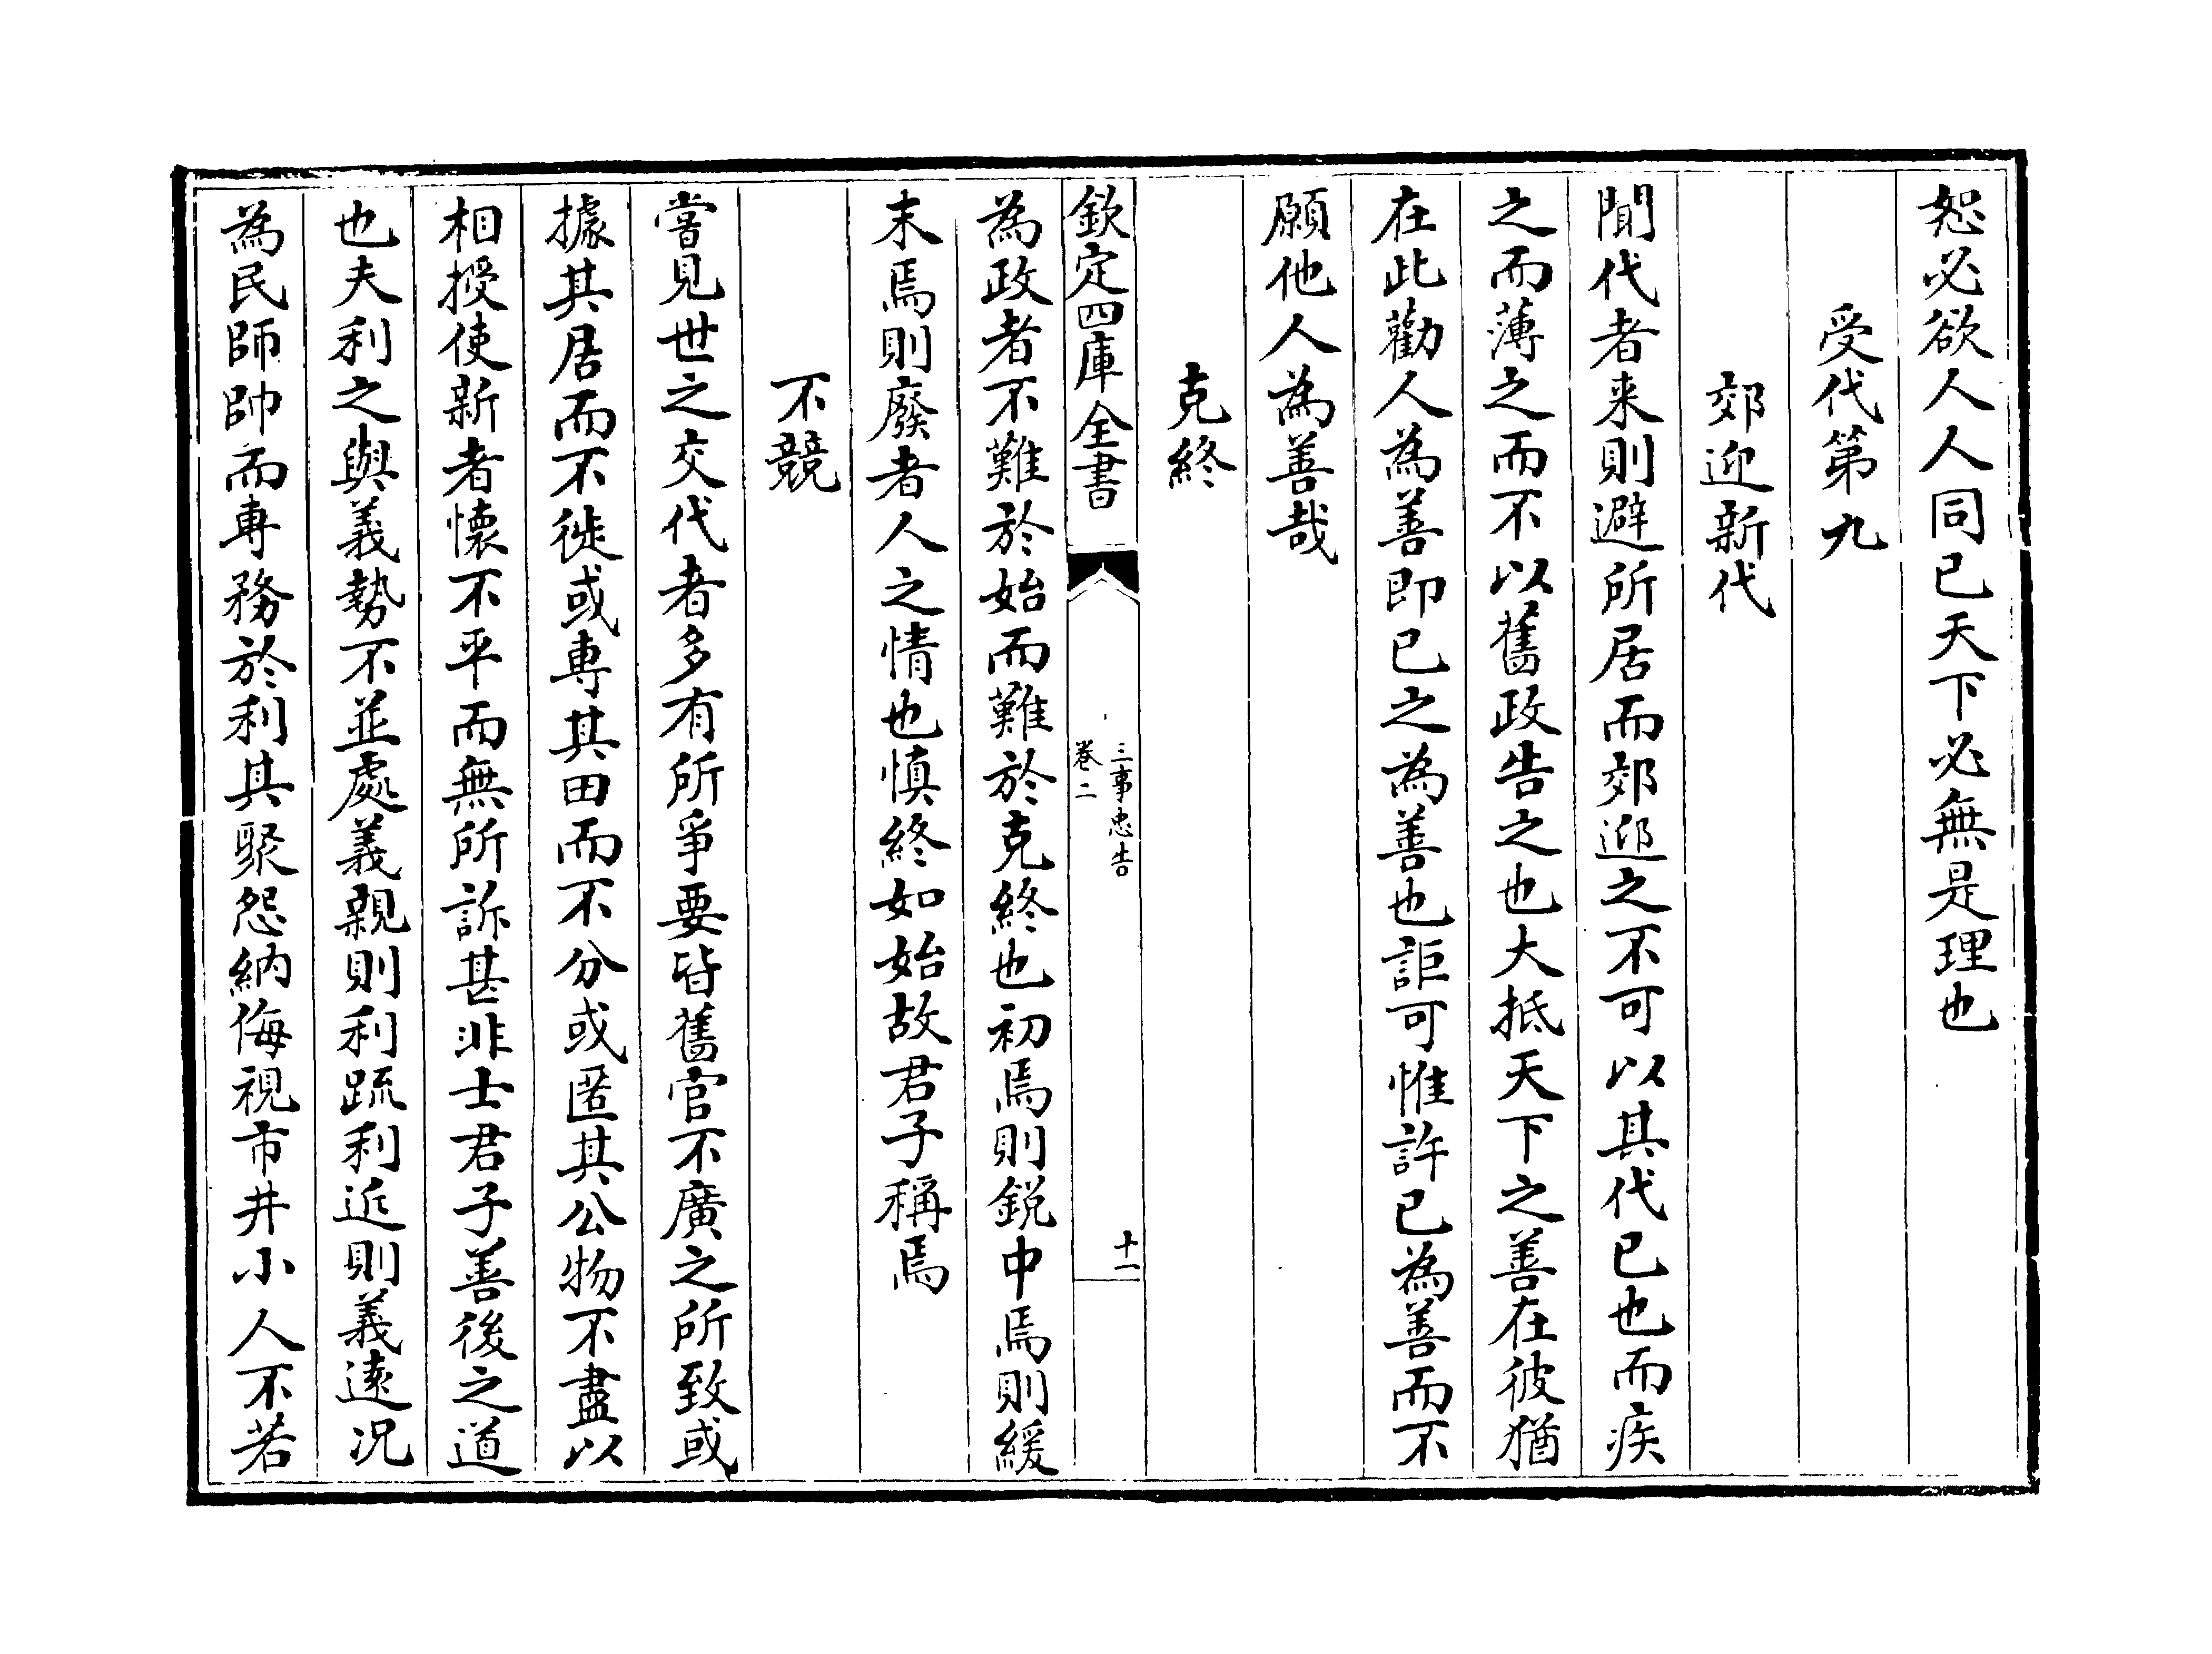 恕必欲人人同已天下必無是理也
受代第九
郊迎新代
聞代者来則避所居而郊迎之不可以其代已也而疾
之而薄之而不以舊政告之也大抵天下之善在彼猶
在此勸人為善即已之為善也詎可惟許已為善而不
願他人為善哉
克終
欽定四庫全書
三事忠告
卷二
十一
為政者不難於始而難於克終也初焉則鋭中焉則緩
末焉則廢者人之情也慎終如始故君子稱焉
不競
嘗見世之交代者多有所爭要皆舊官不廣之所致或
據其居而不徙或專其田而不分或匿其公物不盡以
相授使新者懐不平而無所訴甚非士君子善後之道
也夫利之與義勢不並處義親則利疏利近則義遠况
為民師帥而專務於利其聚怨納侮視市井小人不若